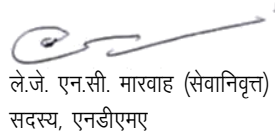 ले.जे. एन.सी. मारवाह (सेवानिवृत्त)
सदस्य, एनडीएमए